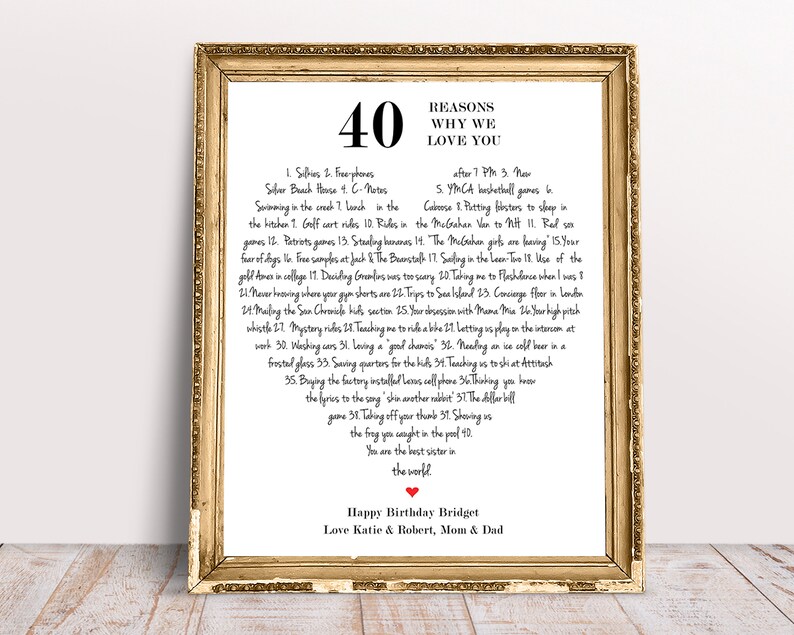 40 REASONS
WHY WE
LOVE YOU
1. Silkies 2. Free-phones after 7 PM 3. New
Silver Beach House 4. C-Notes 5. YMCA basketball games 6.
Swimming in the creek 7. Lunch in the Caboose 8. Putting lobsters to sleep in
the kitchen 9. Golf cart rides 10. Rides in the McGahan Van to NH 11. Red sox
games 12. Patriots games 13. Stealing bananas 14. "The McGahan girls are leaving" 15. Your
fear of dogs 16. Free samples at Jack & The Beanstalk 17. Sailing in the Leen-Two 18. Use of the
gold Amex in college 19. Deciding Gremlins was too scary 20. Taking me to Flashdance when I was 8
21. Never knowing where your gym shorts are 22. Trips to Sea Island 23. Concierge floor in London
24. Mailing the Sun Chronicle kids section 25. Your obsession with Mama Mia 26. Your high pitch
whistle 27. Mystery rides 28. Teaching me to ride a bike 29. Letting us play on the intercom at
work 30. Washing cars 31. Loving a "good chamois" 32. Needing an ice cold beer in a
frosted glass 33. Saving quarters for the kids 34. Teaching us to ski at Attitash
35. Buying the factory installed Lexus cell phone 36. Thinking you know
the lyrics to the song 'skin another rabbit' 37. The dollar bill
game 38. Taking off your thumb 39. Showing us
the frog you caught in the pool 40.
You are the best sister in
the world.
Happy Birthday Bridget
Love Katie & Robert, Mom & Dad